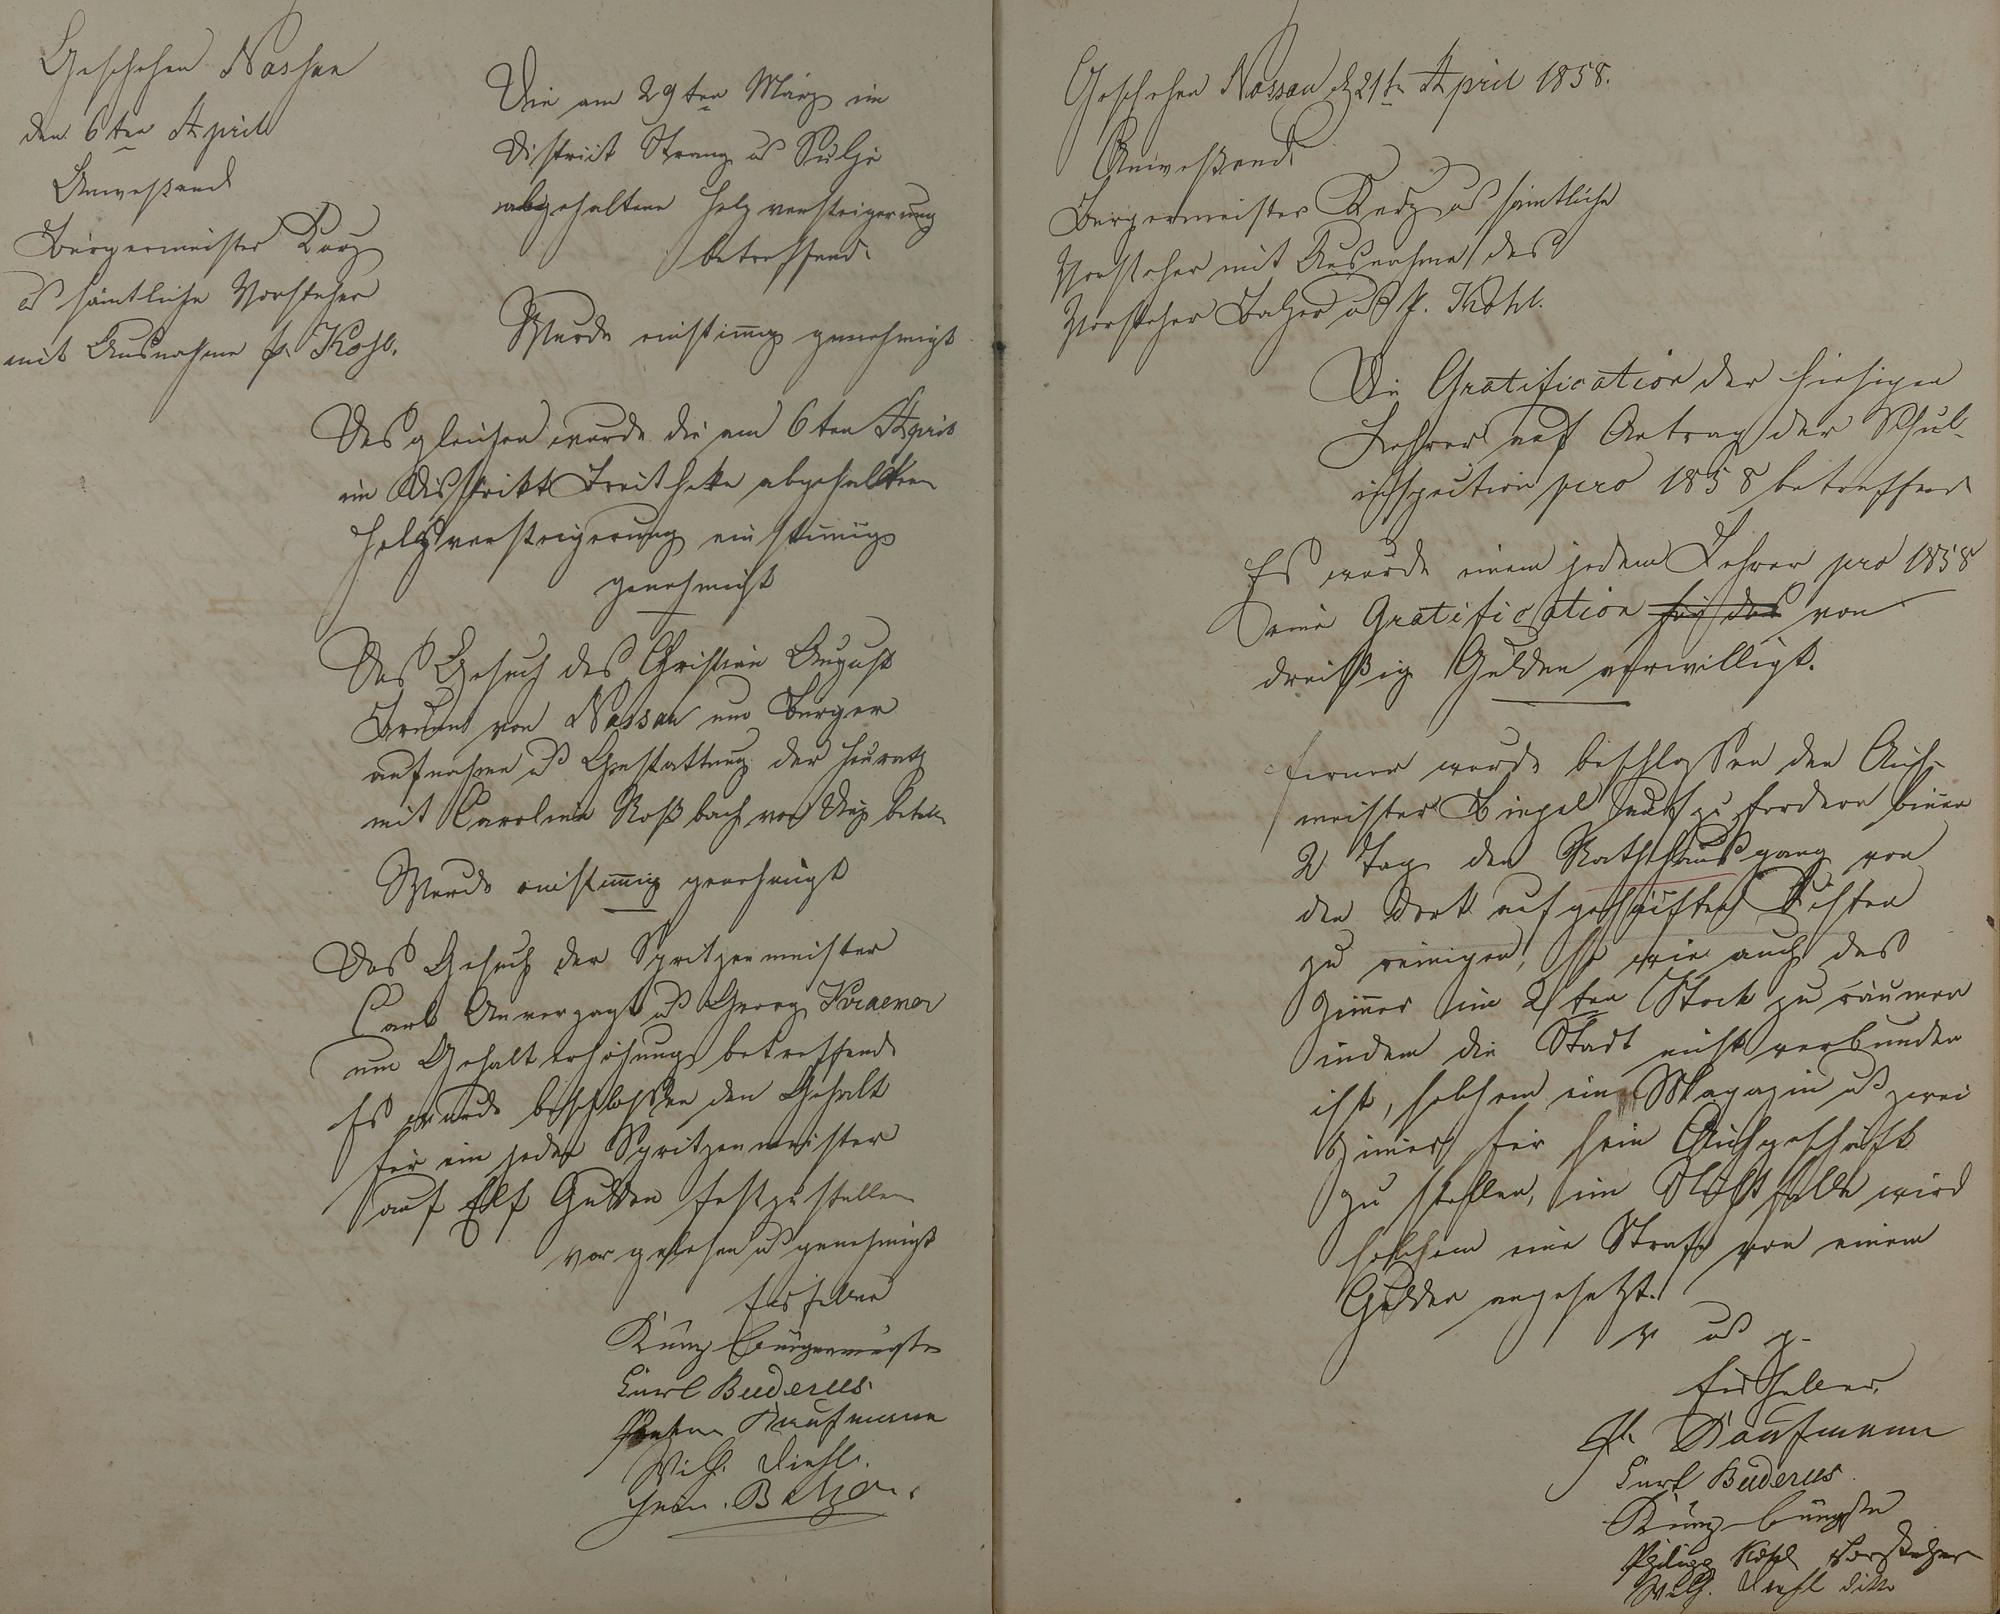 Geschehen Nassau
den 6ten April
Anwesend
Bürgermeister
u sämtliche Vorsteher
mit Ausnahme p. Kohl.
Die am 29ten März im
District Strang u Sulze
abgehaltene Holzversteigerung
betreffend
Wurde einstimig genehmigt
Desgleichen wurde die am 6ten April
im Disstrikt abgehaltten
Holzversteigerung einstimig
genehmigt
Das Gesuch des Christian August
von Nassau um Bürger
aufnahme u Gestattung der Heurath
mit Caroline Roßbach von Diez betr.
Wurde einstimig genehmigt
Das Gesuch der Spritzenmeister
Carl Unverzagt u Georg Kraemer
um Gehalterhöhung betreffend
Es wurde beschlossen den Gehalt
für ein jeder Spritzenmeister
auf Elf Gulden festzustellen
vorgelesen u genehmigt
Kunz Bürgermeister
Carl Buderus
Kaufmann
Wilh. Diehl.
Balzer.
Geschehen Nassau d 21t April 1858.
Anwesend
Bürgermeister u sämtliche
Vorsteher mit Ausnahme des
Vorsteher Balzer u p. Kohl.
Die Gratification der hiesigen
Lehrer auf Antrag der Schul-
inspection pro 1858 betreffend
Es wurde einem jedem Lehrer pro 1858
eine Gratification für das von
dreißig Gulden verwilligt.
ferner wurde beschlossen den Aich-
meister Bingel aufzufordern binen
2 Tag den Rathhausgang von
den dort aufgehäuften Kisten
zu reinigen, so wie auch das
Zimer im 2ten Stock zu räumen
indem die Stadt nicht verbunden
ist, solchem ein Magazin u zwei
Zimer für sein Aichgeschäft
zu stellen, im Nichtfalle wird
solchem eine Strafe von einem
Gulden angesetzt.
v u g.
Kaufmann
Carl Buderus
Kunz Bürgstr
Philipp Kohl Vorsteher
Wilh. Diehl ditto